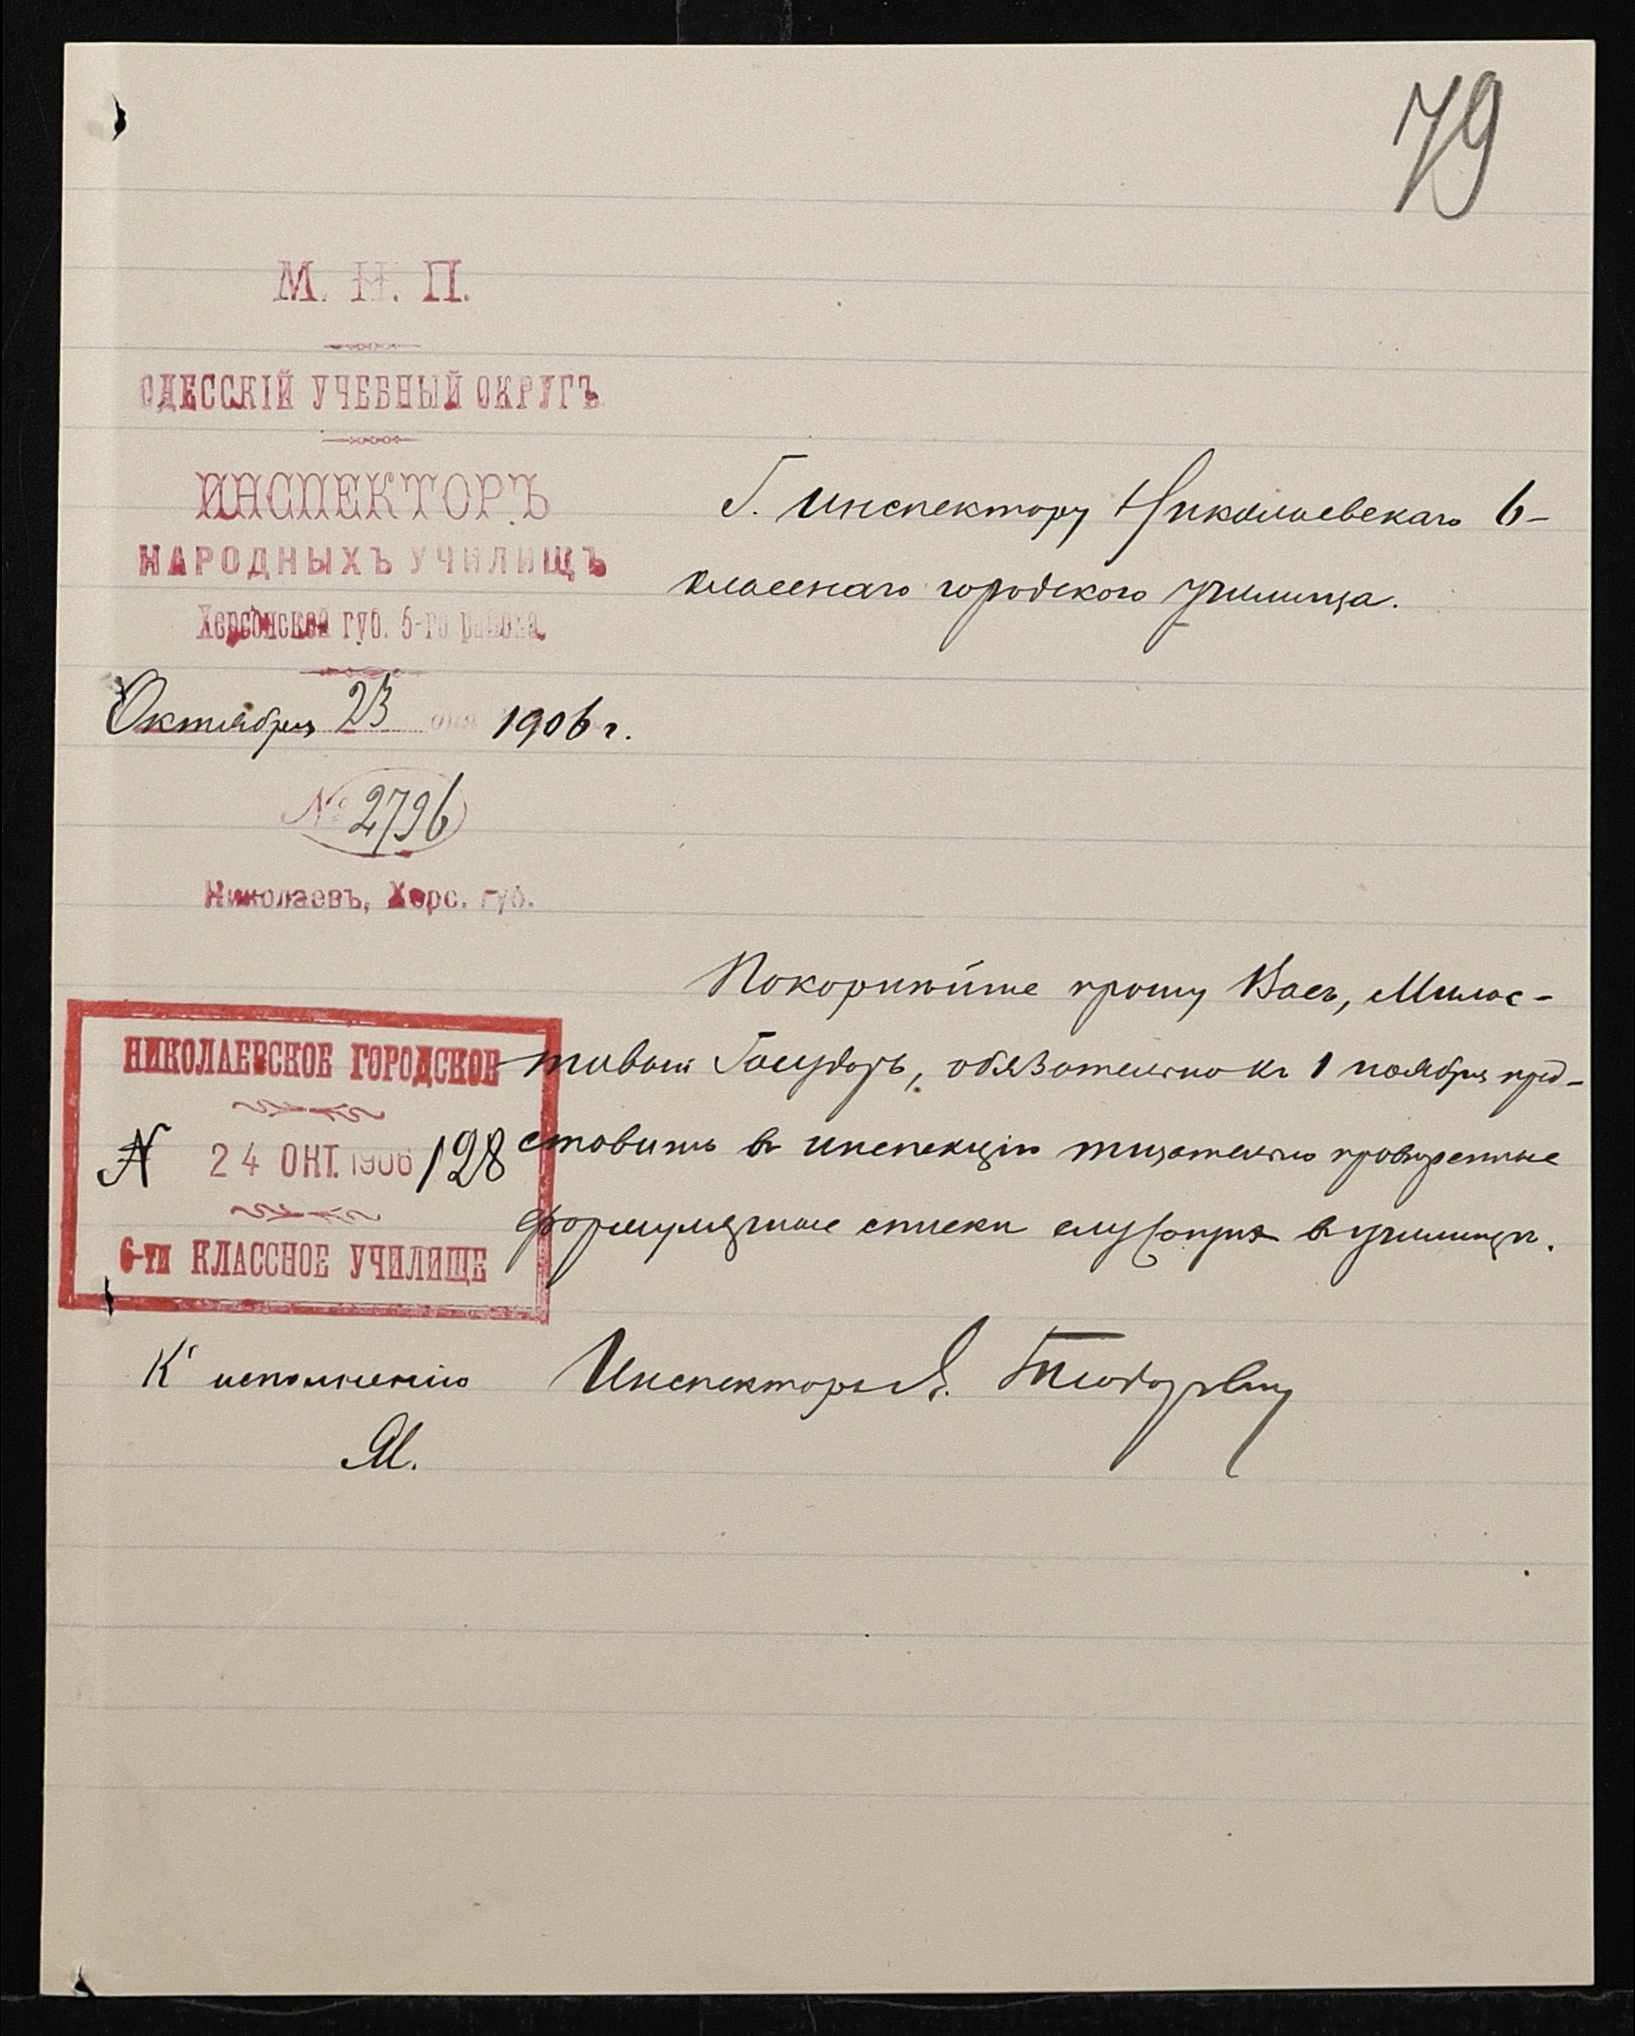 79
М. Н. П.
ОДЕССКІЙ УЧЕБНЫЙ ОКРУГЪ
ИНСПЕКТОРЪ
НАРОДНЫХЪ УЧИЛИЩЪ
Херсонской губ. 6-го района
Октября 23 дня 1906 г.
№ 2796
Николаевъ, Херс. губ.
Г. Инспектору Николаевскаго 6-
класснаго городского училища.
Покорнѣйше прошу Васъ, Милос-
тивый Государь, обязательно къ 1 ноября пред-
ставить въ инспекцію тщательно провѣренные
формулярные списки служащихъ въ училищѣ.
НИКОЛАЕВСКОЕ ГОРОДСКОЕ
№ 24 ОКТ. 1906 128
6-ти КЛАССНОЕ УЧИЛИЩЕ
Инспекторъ
Къ исполненію